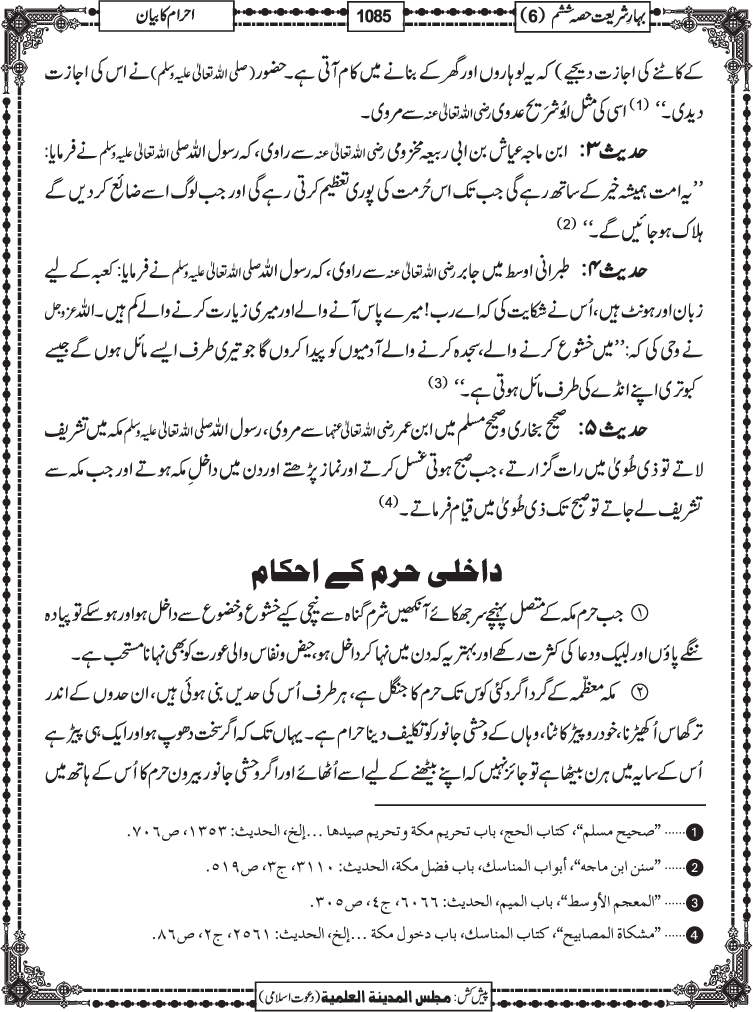 بہار شریعت حصہ ششم (6)
1085
احرام کا بیان
کے کاٹنے کی اجازت دیجیے) کہ یہ لوہاروں اور گھر کے بنانے میں کام آتی ہے۔ حضور (صلی اللہ تعالیٰ علیہ وسلم) نے اس کی اجازت
دیدی۔‘‘ (1) اسی کی مثل ابُو شَرَیح عدوی رضی اللہ تعالیٰ عنہ سے مروی۔
حدیث ۳: ابن ماجہ عیاش بن ابی ربیعہ مخزومی رضی اللہ تعالیٰ عنہ سے راوی، کہ رسول اللہ صلی اللہ تعالیٰ علیہ وسلم نے فرمایا:
’’یہ امت ہمیشہ خیر کے ساتھ رہے گی جب تک اس حُرمت کی پوری تعظیم کرتی رہے گی اور جب لوگ اسے ضائع کر دیں گے
ہلاک ہو جائیں گے۔‘‘ (2)
حدیث ۴: طبرانی اوسط میں جابر رضی اللہ تعالیٰ عنہ سے راوی، کہ رسول اللہ صلی اللہ تعالیٰ علیہ وسلم نے فرمایا: کعبہ کے لیے
زبان اور ہونٹ ہیں، اُس نے شکایت کی کہ اے رب! میرے پاس آنے والے اور میری زیارت کرنے والے کم ہیں۔ اللہ عزوجل
نے وحی کی کہ: ’’میں خشوع کرنے والے، سجدہ کرنے والے آدمیوں کو پیدا کروں گا جو تیری طرف ایسے مائل ہوں گے جیسے
کبوتری اپنے انڈے کی طرف مائل ہوتی ہے۔‘‘ (3)
حدیث ۵: صحیح بخاری و صحیح مسلم میں ابن عمر رضی اللہ تعالیٰ عنہما سے مروی، رسول اللہ صلی اللہ تعالیٰ علیہ وسلم مکہ میں تشریف
لاتے تو ذی طُویٰ میں رات گزارتے، جب صبح ہوتی غسل کرتے اور نماز پڑھتے اور دن میں داخلِ مکہ ہوتے اور جب مکہ سے
تشریف لے جاتے تو صبح تک ذی طُویٰ میں قیام فرماتے۔ (4)
داخلی حرم کے احکام
① جب حرم مکہ کے متصل پہنچے سر جھکائے آنکھیں شرم گناہ سے نیچی کیے خشوع و خضوع سے داخل ہو اور ہو سکے تو پیادہ
ننگے پاؤں اور لبیک و دعا کی کثرت رکھے اور بہتر یہ کہ دن میں نہا کر داخل ہو، حیض و نفاس والی عورت کو بھی نہانا مستحب ہے۔
② مکہ معظّمہ کے گرداگرد کئی کوس تک حرم کا جنگل ہے، ہر طرف اُس کی حدیں بنی ہوئی ہیں، ان حدوں کے اندر
تر گھاس اُکھیڑنا، خودرو پیڑ کاٹنا، وہاں کے وحشی جانور کو تکلیف دینا حرام ہے۔ یہاں تک کہ اگر سخت دھوپ ہو اور ایک ہی پیڑ ہے
اُس کے سایہ میں ہرن بیٹھا ہے تو جائز نہیں کہ اپنے بیٹھنے کے لیے اسے اُٹھائے اور اگر وحشی جانور بیرون حرم کا اُس کے ہاتھ میں
1 ...... ”صحيح مسلم“، كتاب الحج، باب تحريم مكة و تحريم صيدها ...إلخ، الحديث: ١٣٥٣، ص٧٠٦.
2 ...... ”سنن ابن ماجه“، أبواب المناسك، باب فضل مكة، الحديث: ٣١١٠، ج٣، ص٥١٩.
3 ...... ”المعجم الأوسط“، باب الميم، الحديث: ٦٠٦٦، ج٤، ص٣٠٥.
4 ...... ”مشكاة المصابيح“، كتاب المناسك، باب دخول مكة ...إلخ، الحديث: ٢٥٦١، ج٢، ص٨٦.
پیش کش: مجلس المدینۃ العلمیۃ (دعوت اسلامی)